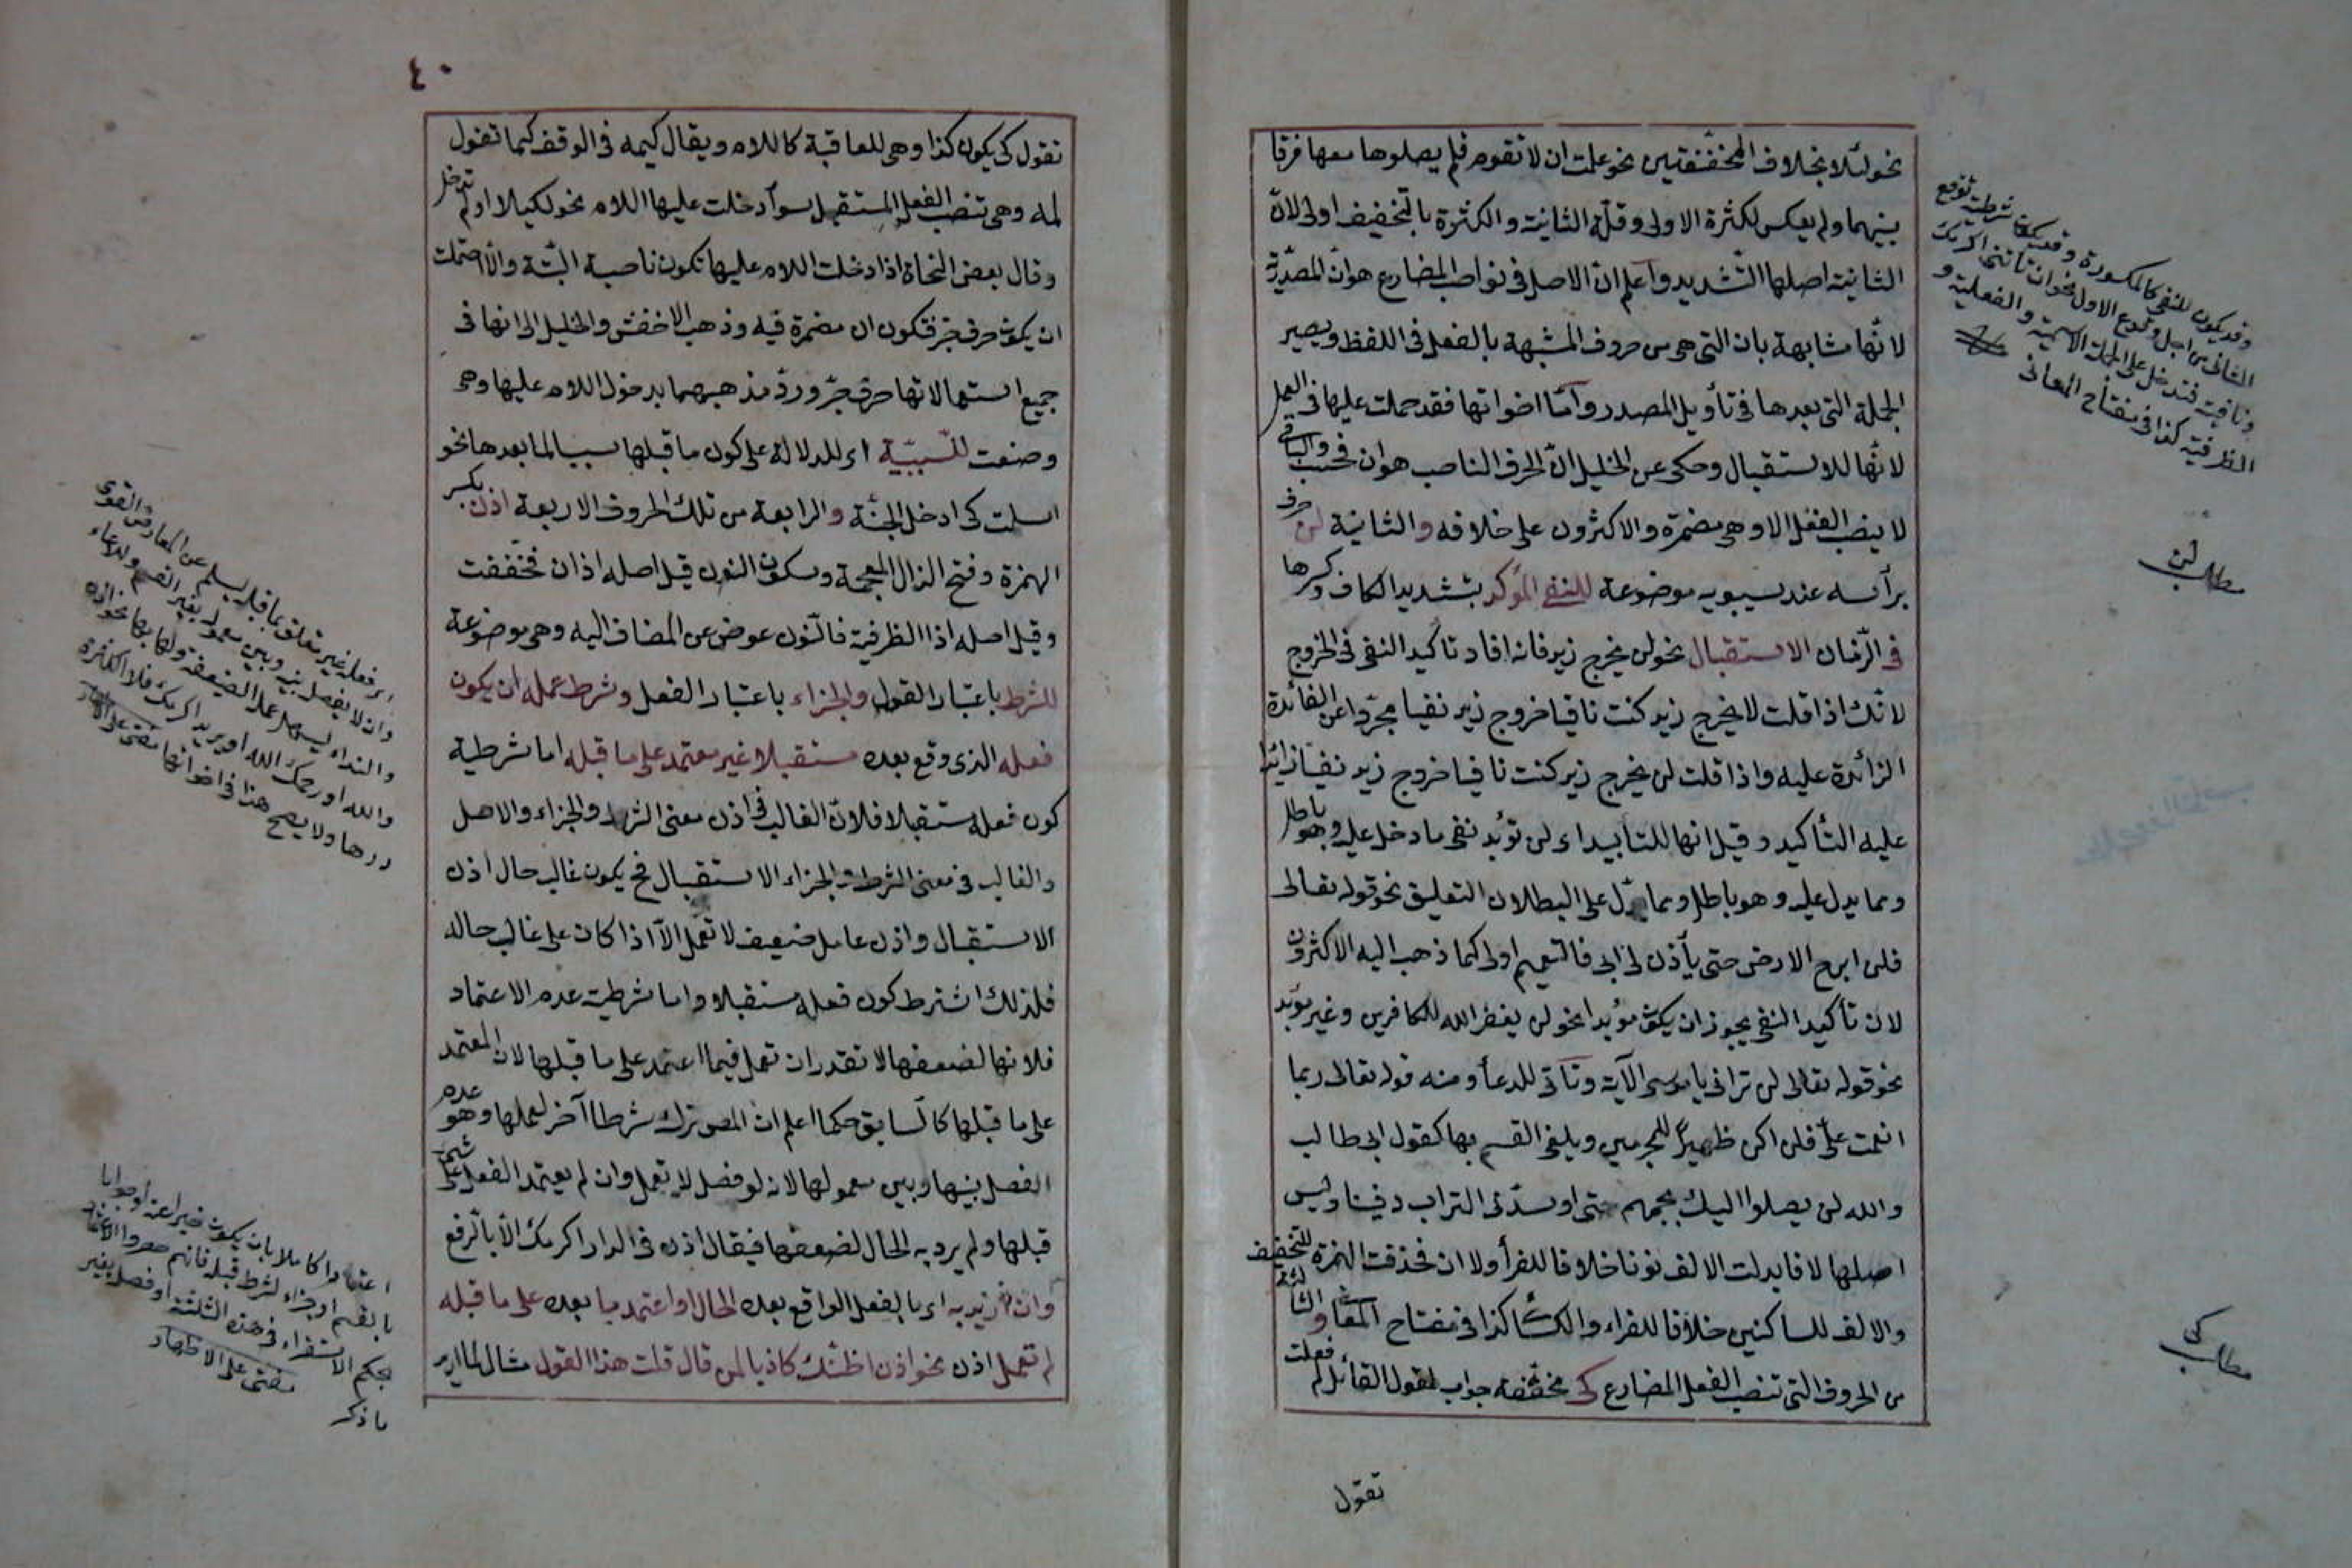 نحو لئلا بخلاف المخففتين نحو علمت ان لا تقوم فلم يصلوها معها فرقا
بينهما ولم يعكس لكثرة الاولى وقلة الثانية والكثرة بالتخفيف اولى لانّ
الثانية اصلها التشديد واعلم انّ الاصل فى نواصب المضارع هو ان المصدّرية
لانّها مشابهة بان التى هى من حروف المشبهة بالفعل فى اللفظ ويصير
الجملة التى بعدها فى تأويل المصدر وامّا اخواتها فقد حملت عليها فى العمل
لانّها للاستقبال وحكى عن الخليل انّ الحرف الناصب هو ان فحسب والباقى
لا ينصب الفعل الا وهى مضمرة والاكثرون على خلافه والثانية لن حرف
برأسه عند سيبويه موضوعة للنفى المؤكد بتشديد الكاف وكسرها
فى الزمان الاستقبال نحو لن يخرج زيد فانه افاد تاكيد النفى فى الخروج
لانّك اذا قلت لا يخرج زيد كنت نافيا خروج زيد نفيا مجرّدا عن الفائدة
الزائدة عليه واذا قلت لن يخرج زيد كنت نافيا خروج زيد نفيا زائدا
عليه التأكيد وقيل انها للتابيد اى لن تؤبد نفى ما دخل عليه وهو باطل
ومما يدل عليه وهو باطل ومما يدل على البطلان التعليق نحو قوله تعالى
فلن ابرح الارض حتى يأذن لى ابى فالتعميم اولى كما ذهب اليه الاكثرون
لان تأكيد النفى يجوز ان يكون مؤبدا نحو لن يغفر الله للكافرين وغير مؤبد
نحو قوله تعالى لن ترانى يا موسى الآية وتأتى للدعأ ومنه قوله تعالى ربما
انعمت علىّ فلن اكن ظهيرًا للمجرمين ويلغى القسم بها كقول ابى طالب
والله لن يصلوا اليك بجمهم حتى اوسّد فى التراب دفينا وليس
اصلها لا فابدلت الالف نونا خلافا للفرأ ولا ان فحذفت الهمزة للتخفيف
والالف للساكنين خلافا للفراء والكسا كذا فى مفتاح المعا والثالثة
من الحروف التى تنصب الفعل المضارع كى مخففة جواب لقول القائل لم فعلت
تقول
وقد يكون للنفى كالمكسورة وقد يكون شرطية توقع
الثانى من اجل وقوع الاول نحو ان تأتنى اكرمك
ونافية فتدخل على الجملة الاسمية والفعلية و
الظرفية كذا فى مفتاح المعانى
مطلب لن
مطلب كى
٤٠
تقول كى يكون كذا وهى للعاقبة كاللام ويقال كيمه فى الوقف كما تقول
لمه وهى تنصب الفعل المستقبل سوآ دخلت عليها اللام نحو لكيلا او لم تدخل
وقال بعض النحاة اذا دخلت اللام عليها تكون ناصبة البتّة والّا احتملت
ان يكون حرف جرّ فتكون ان مضمرة فيه وذهب الاخفش والخليل الى انها فى
جميع استعمالاتها حرف جرّ وردّ مذهبهما بدخول اللام عليها وهى
وضعت للسّببيّة اى للدلالة على كون ما قبلها سببا لما بعدها نحو
اسلمت كى ادخل الجنّة والرابعة من تلك الحروف الاربعة اذن بكسر
الهمزة وفتح الذال المعجمة وسكون النون قيل اصله اذ ان فخفّفت
وقيل اصله اذا الظرفية فالنّون عوض عن المضاف اليه وهى موضوعة
للشرط باعتبار القول والجزاء باعتبار الفعل وشرط عمله ان يكون
فعله الذى وقع بعده مستقبلا غير معتمد على ما قبله اما شرطية
كون فعله مستقبلا فلانّ الغالب فى اذن معنى الشرط والجزاء والاصل
والغالب فى معنى الشرط والجزاء الاستقبال فح يكون غالب حال اذن
الاستقبال واذن عامل ضعيف لا تعمل الّا اذا كان على غالب حاله
فلذلك اشترط كون فعله مستقبلا واما شرطية عدم الاعتماد
فلانها لضعفها لا تقدر ان تعمل فيما اعتمد على ما قبلها لان المعتمد
على ما قبلها كالسابق حكما اعلم ان المص ترك شرطا آخر لعملها وهو عدم
الفصل بينها وبين معمولها لانه لو فصل لا تعمل وان لم يعتمد الفعل على شئ
قبلها ولم يرد به الحال لضعفها فيقال اذن فى الدار اكرمك الّا بالرفع
وان اريد به اى بالفعل الواقع بعده الحال او اعتمد ما بعده على ما قبله
لم تعمل اذن نحو اذن اظنّك كاذبا لمن قال قلت هذا القول مثال لما اريد
اى فعله غير متعلق بما قبله ليسلم عن المعارض القوى
وان لا يفصل بينه وبين معموله بغير القسم والدعاء
والنداء ليسهل عمل الضعيفة
والله او رحمك الله او يا زيد اكرمك
درهما ولا يصح هذا فى اخواتها
اعتمادا كاملا بان يكون خبرا عنه او جوابا
بالقسم او جزاء لشرط قبله فانهم حصروا الاعتماد
بحكم الاستقراء فى هذه الثلثة او فصل بغير
ما ذكر
على الاظهار